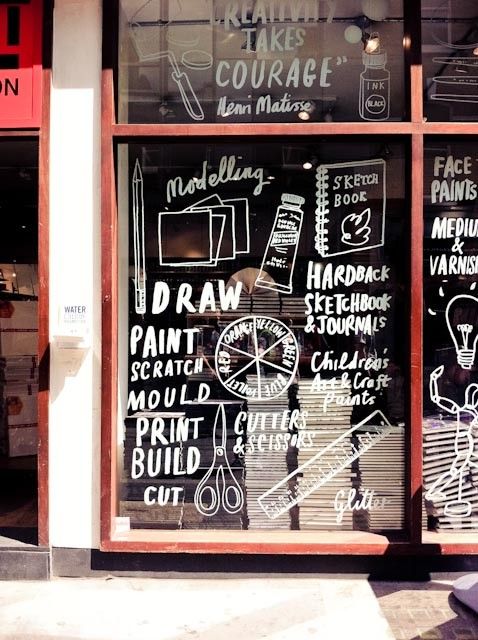 "CREATIVITY
TAKES
COURAGE"
Henri Matisse
INK
BLACK
ON
Modelling
SKETCH
BOOK
FACE
PAINTS
MEDIU
&
VARNISH
DRAW
HARDBACK
SKETCHBOOK
& JOURNALS
PAINT
SCRATCH
MOULD
PRINT
BUILD
CUT
RED ORANGE YELLOW GREEN BLUE VIOLET
Children's
Art & Craft
Paints
CUTTERS
& SCISSORS
Glitter
WATER